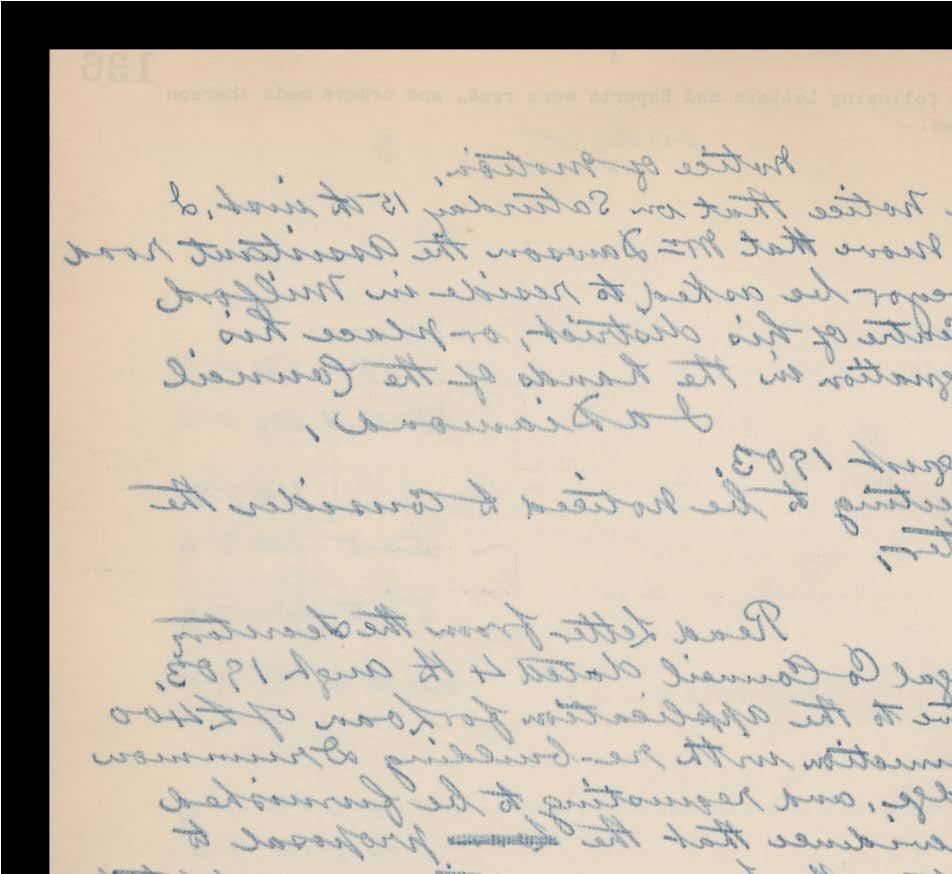 136
following Letters and Reports were read, and orders made thereon
Notice of Motion.
Notice that on Saturday 15th inst. I
move that Mr Dawson the assistant road
be asked to reside in Milford
of his district, or place his
in the hands of the Council
I A Diamond,
1903.
to be noticed to Consider the
Read Letter from the Secretary
Co Council dated 4th Augt 1903.
to the application for Loan of £400
with re-building Drummon
and requesting to be furnished
that the proposal to